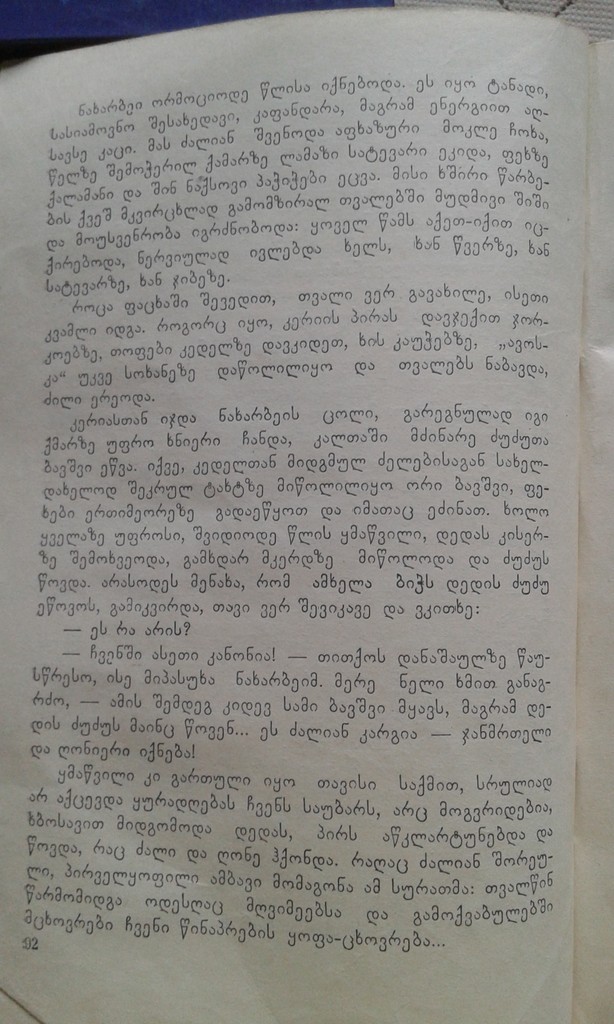 ნახარბეი ორმოციოდე წლისა იქნებოდა. ეს იყო ტანადი,
სასიამოვნო შესახედავი, კაფანდარა, მაგრამ ენერგიით აღ-
სავსე კაცი. მას ძალიან შვენოდა აფხაზური მოკლე ჩოხა,
წელზე შემოჭერილ ქამარზე ლამაზი სატევარი ეკიდა, ფეხზე
ქალამანი და შინ ნაქსოვი პაჭიჭები ეცვა. მისი ხშირი წარბე-
ბის ქვეშ მკვირცხლად გამომზირალ თვალებში მუდმივი შიში
და მოუსვენრობა იგრძნობოდა: ყოველ წამს აქეთ-იქით იც-
ქირებოდა, ნერვიულად ივლებდა ხელს, ხან წვერზე, ხან
სატევარზე, ხან ჯიბეზე.
როცა ფაცხაში შევედით, თვალი ვერ გავახილე, ისეთი
კვამლი იდგა. როგორც იყო, კერიის პირას დავჯექით ჯორ-
კოებზე, თოფები კედელზე დავკიდეთ, ხის კაუჭებზე, „ავოს-
კა“ უკვე სოხანეზე დაწოლილიყო და თვალებს ნაბავდა,
ძილი ერეოდა.
კერიასთან იჯდა ნახარბეის ცოლი, გარეგნულად იგი
ქმარზე უფრო ხნიერი ჩანდა, კალთაში მძინარე ძუძუთა
ბავშვი ეწვა. იქვე, კედელთან მიდგმულ ძელებისაგან სახელ-
დახელოდ შეკრულ ტახტზე მიწოლილიყო ორი ბავშვი, ფე-
ხები ერთიმეორეზე გადაეწყოთ და იმათაც ეძინათ. ხოლო
ყველაზე უფროსი, შვიდიოდე წლის ყმაწვილი, დედას კისერ-
ზე შემოხვეოდა, გამხდარ მკერდზე მიწოლოდა და ძუძუს
წოვდა. არასოდეს მენახა, რომ ამხელა ბიჭს დედის ძუძუ
ეწოვოს, გამიკვირდა, თავი ვერ შევიკავე და ვკითხე:
— ეს რა არის?
— ჩვენში ასეთი კანონია! — თითქოს დანაშაულზე წაუ-
სწრესო, ისე მიპასუხა ნახარბეიმ. მერე ნელი ხმით განაგ-
რძო, — ამის შემდეგ კიდევ სამი ბავშვი მყავს, მაგრამ დე-
დის ძუძუს მაინც წოვენ... ეს ძალიან კარგია — ჯანმრთელი
და ღონიერი იქნება!
ყმაწვილი კი გართული იყო თავისი საქმით, სრულიად
არ აქცევდა ყურადღებას ჩვენს საუბარს, არც მოგვრიდებია,
ხბოსავით მიდგომოდა დედას, პირს აწკლარტუნებდა და
წოვდა, რაც ძალი და ღონე ჰქონდა. რაღაც ძალიან შორეუ-
ლი, პირველყოფილი ამბავი მომაგონა ამ სურათმა: თვალწინ
წარმომიდგა ოდესღაც მღვიმეებსა და გამოქვაბულებში
მცხოვრები ჩვენი წინაპრების ყოფა-ცხოვრება...
92